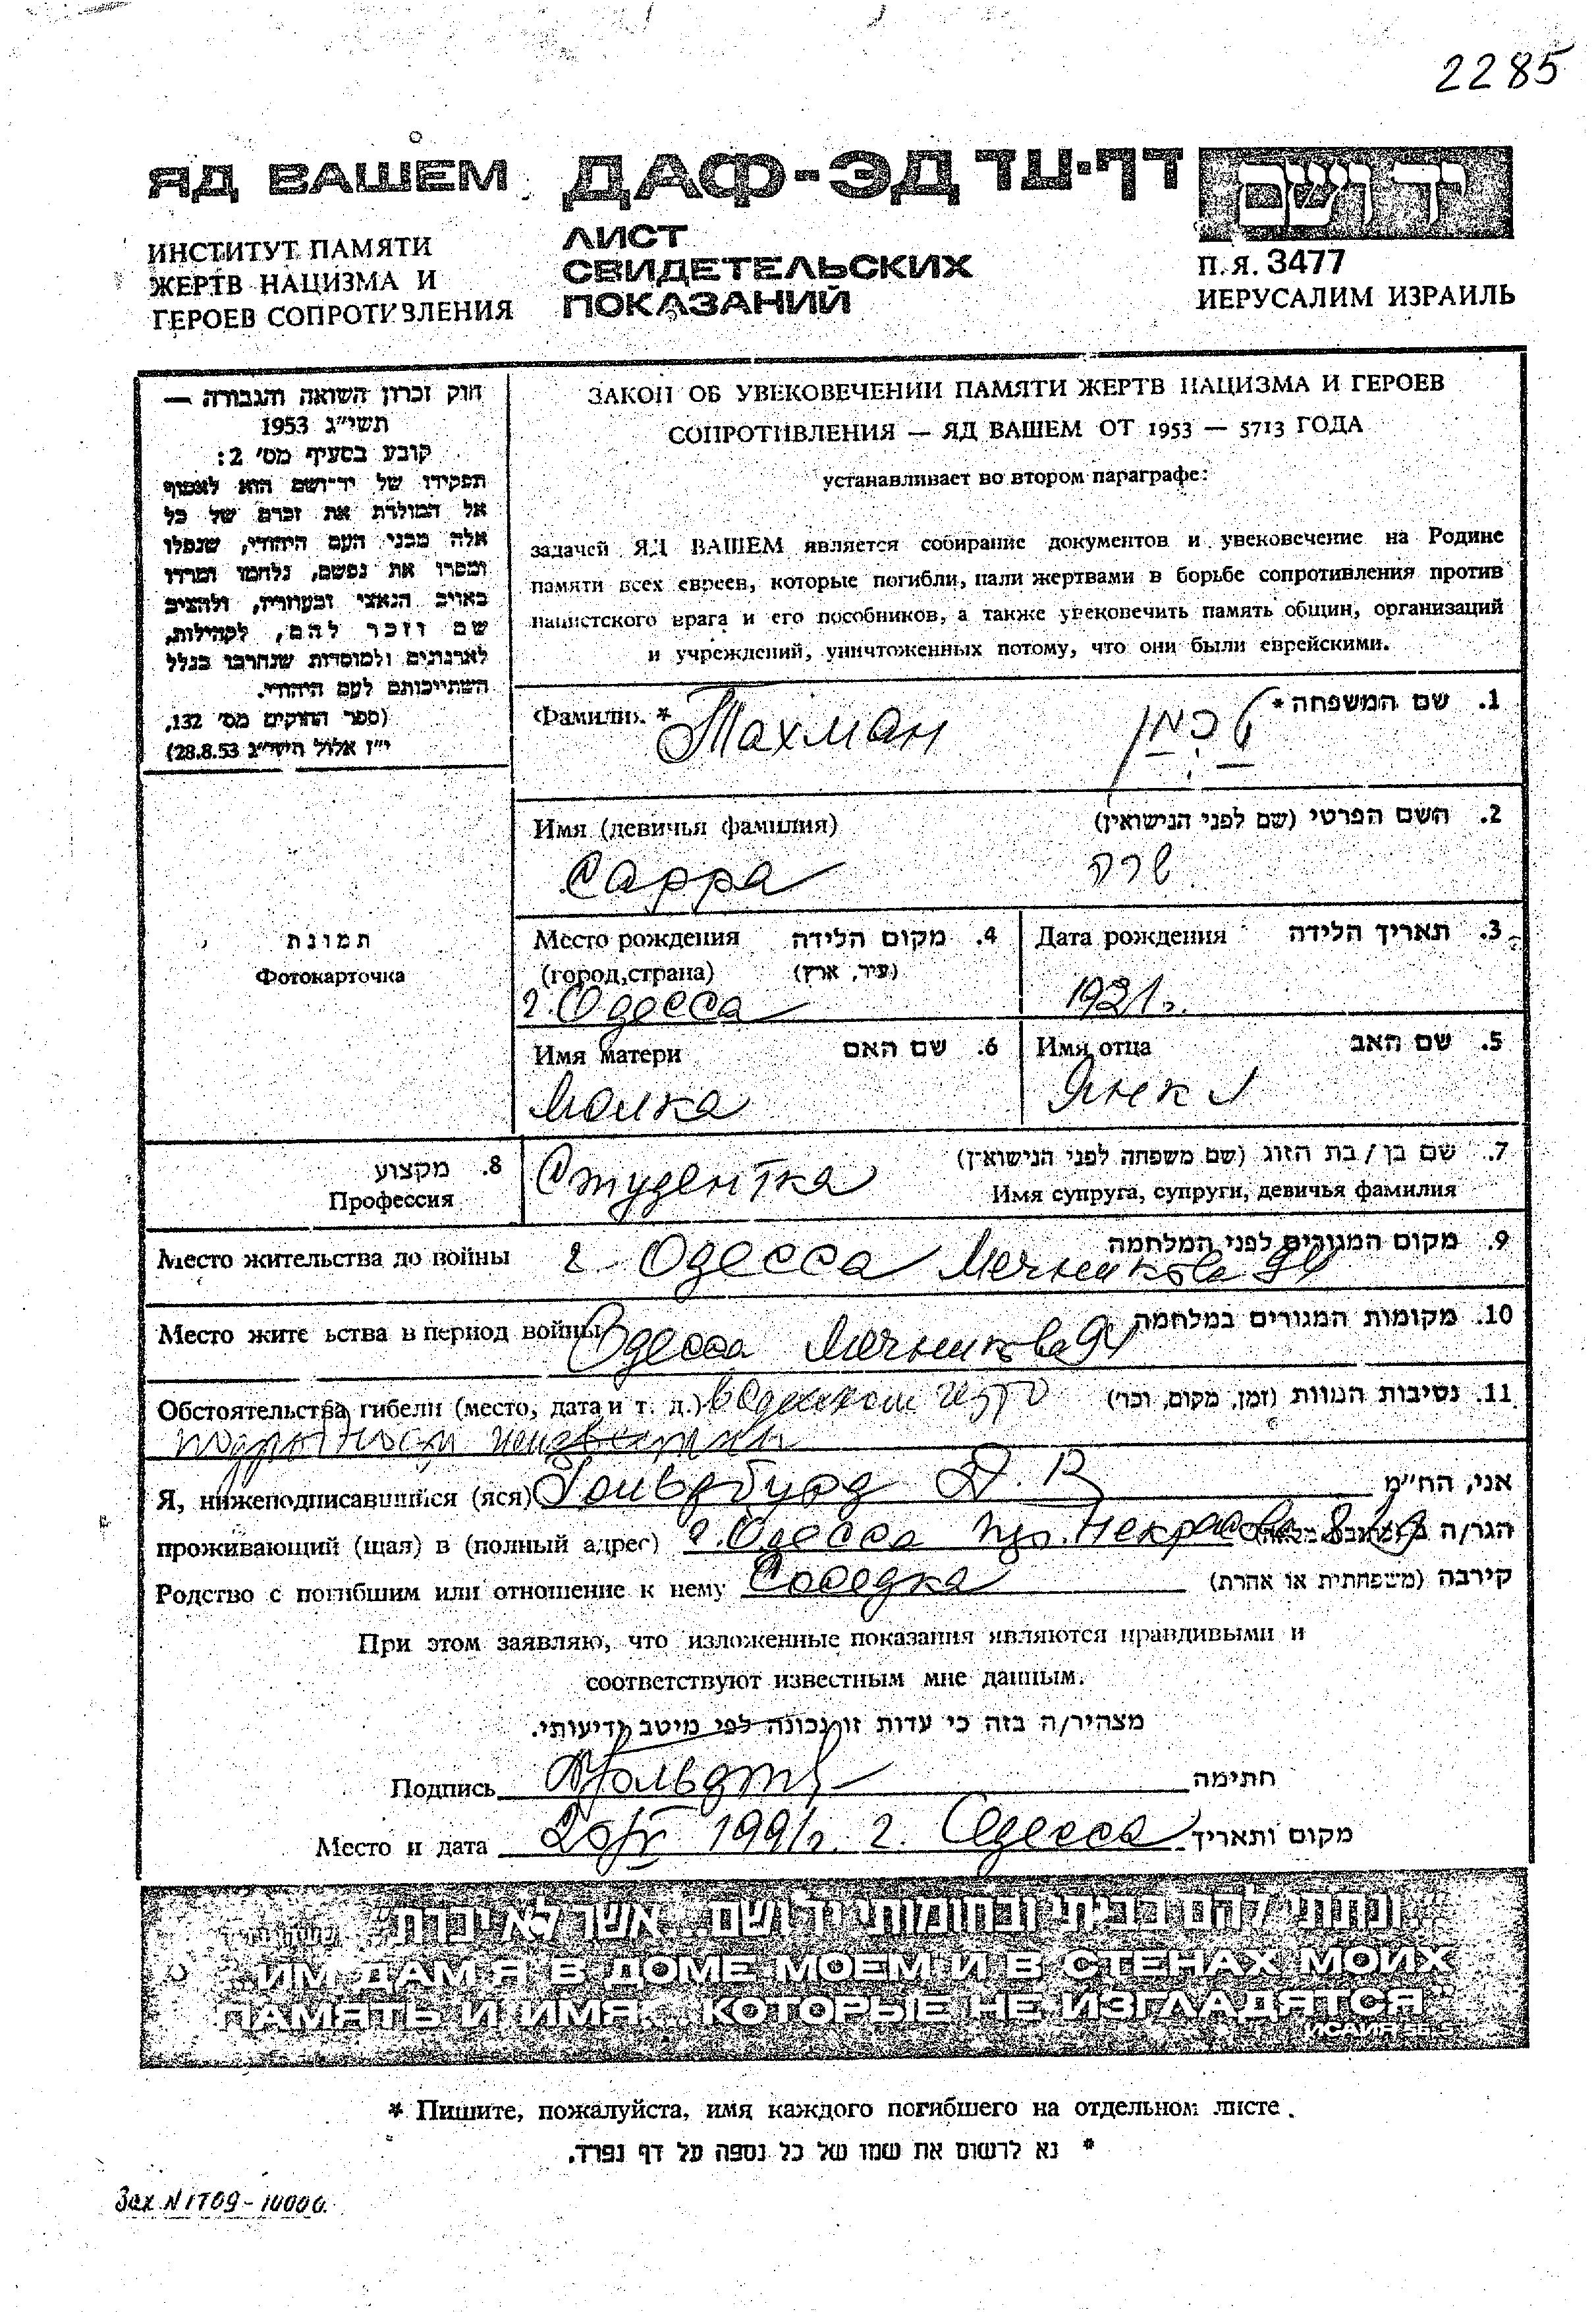 2285
ЯД ВАШЕМ
ДАФ-ЭД דף-עד
יד ושם
ИНСТИТУТ ПАМЯТИ
ЖЕРТВ НАЦИЗМА И
ГЕРОЕВ СОПРОТИВЛЕНИЯ
ЛИСТ
СВИДЕТЕЛЬСКИХ
ПОКАЗАНИЙ
П.Я. 3477
ИЕРУСАЛИМ ИЗРАИЛЬ
חוק זכרון השואה והגבורה —
תשי"ג 1953
קובע בסעיף מס' 2:
תפקידו של יד-ושם הוא לאסוף
אל המולדת את זכרם של כל
אלה מבני העם היהודי, שנפלו
ומסרו את נפשם, נלחמו ומרדו
באויב הנאצי ובעוזריו, ולהציב
שם וזכר להם, לקהילות,
לארגונים ולמוסדות שנחרבו בגלל
השתייכותם לעם היהודי.
(ספר החוקים מס' 132,
י"ז אלול תשי"ג 28.8.53)
ЗАКОН ОБ УВЕКОВЕЧЕНИИ ПАМЯТИ ЖЕРТВ НАЦИЗМА И ГЕРОЕВ
СОПРОТИВЛЕНИЯ — ЯД ВАШЕМ ОТ 1953 — 5713 ГОДА
устанавливает во втором параграфе:
задачей ЯД ВАШЕМ является собирание документов и увековечение на Родине
памяти всех евреев, которые погибли, пали жертвами в борьбе сопротивления против
нацистского врага и его пособников, а также увековечить память общин, организаций
и учреждений, уничтоженных потому, что они были еврейскими.
Фамилия * Тахман טכמן 1. שם המשפחה *
Имя (девичья фамилия) 2. השם הפרטי (שם לפני הנישואין)
Сарра שרה
תמונת
Фотокарточка
Место рождения 4. מקום הלידה
(город,страна) (עיר, ארץ)
г. Одесса
Дата рождения 3. תאריך הלידה
1921г.
Имя матери 6. שם האם
Имя отца 5. שם האב
8. מקצוע
Профессия
Студентка
7. שם בן / בת הזוג (שם משפחה לפני הנישואין)
Имя супруга, супруги, девичья фамилия
Место жительства до войны г. Одесса Мечникова 94 9. מקום המגורים לפני המלחמה
Место жите ьства в период войны Одесса Мечникова 94 10. מקומות המגורים במלחמה
Обстоятельства гибели (место, дата и т. д.) 11. נסיבות המוות (זמן, מקום, וכו')
подробности неизвестны
Я, нижеподписавшийся (аяся) אני, הח"מ
проживающий (щая) в (полный адрес) г. Одесса пер. Некрасова
Родство с погибшим или отношение к нему Соседка קירבה (משפחתית או אחרת)
При этом заявляю, что изложенные показания являются правдивыми и
соответствуют известным мне данным.
מצהיר/ה בזה כי עדות זו נכונה לפי מיטב ידיעותי.
Подпись חתימה
Место и дата 1991г. г. Одесса מקום ותאריך
"...ונתתי להם בביתי ובחומותי יד ושם... אשר לא יכרת"
"...ИМ ДАМ Я В ДОМЕ МОЕМ И В СТЕНАХ МОИХ
ПАМЯТЬ И ИМЯ... КОТОРЫЕ НЕ ИЗГЛАДЯТСЯ"
* Пишите, пожалуйста, имя каждого погибшего на отдельном листе.
* נא לרשום את שמו של כל נספה על דף נפרד.
Зак. N 1709 - 10000.